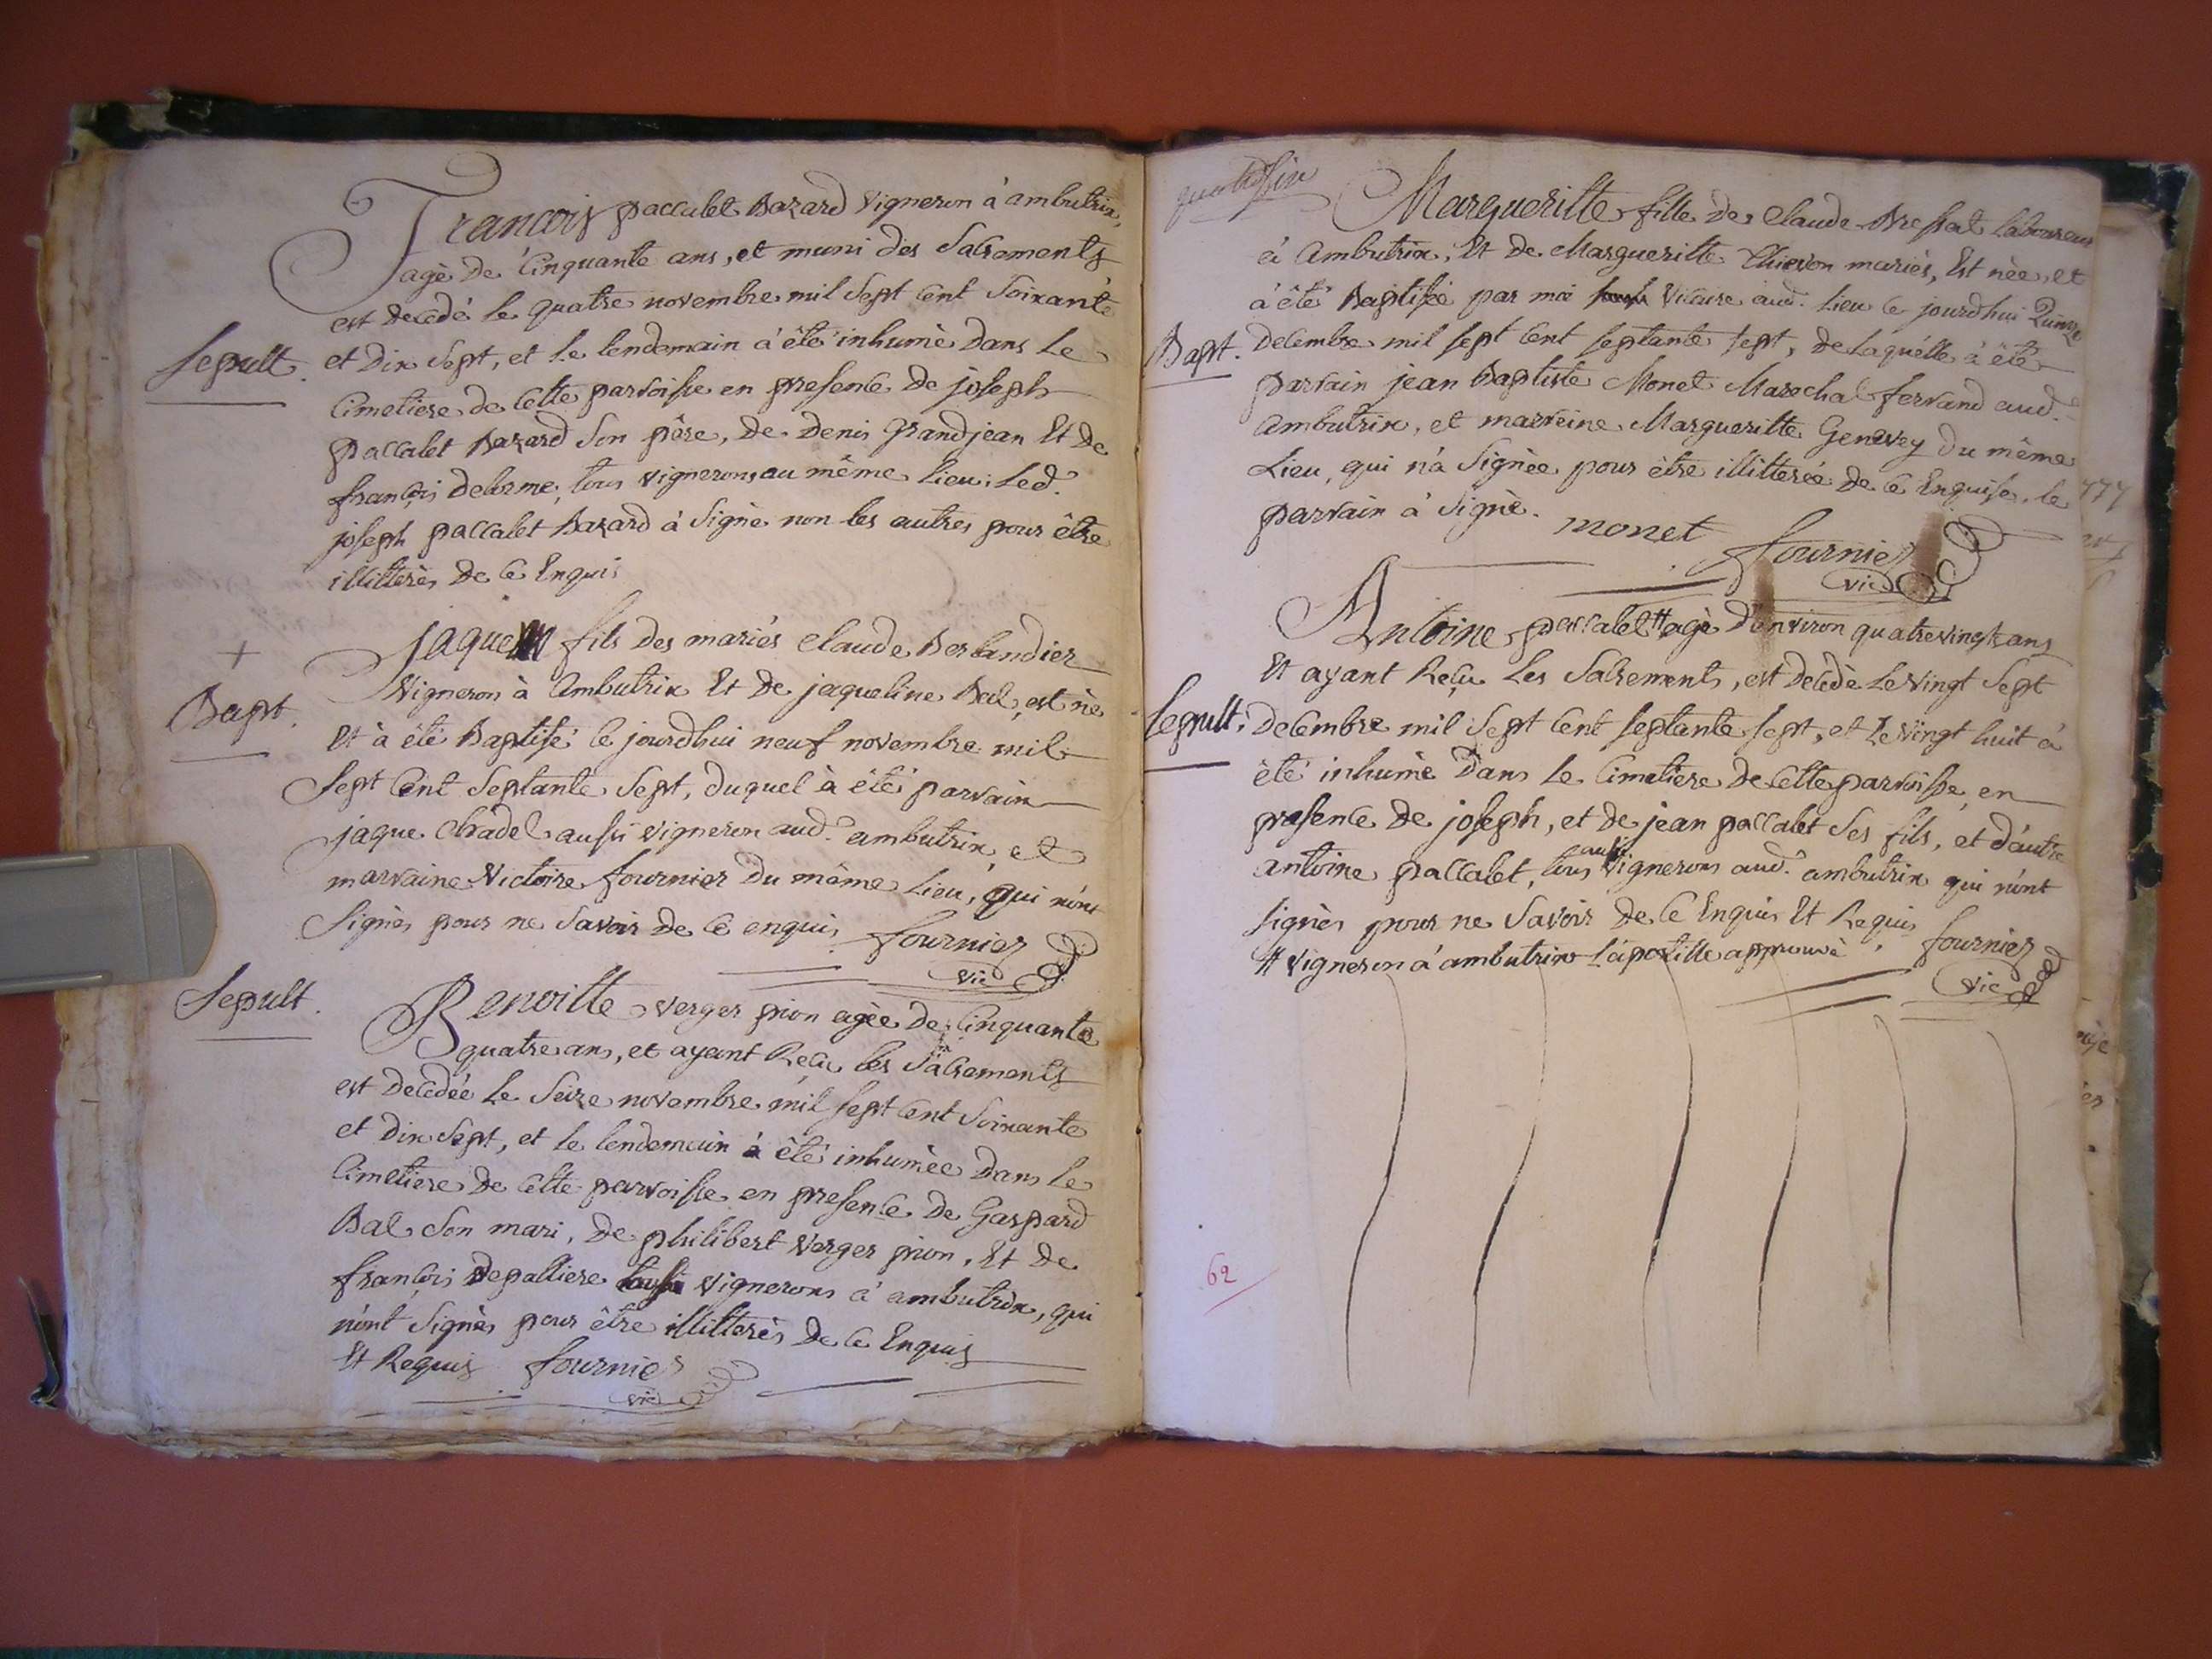 François paccalet Bazard vigneron à ambutrix,
agè de Cinquante ans, et muni des Sacrements
est decedé le quatre novembre mil Sept Cent Soixante
Sepult. et Dix Sept, et le lendemain à êté inhumè Dans Le
Cimetiere de Cette parroisse en presence De joseph
paccalet Bazard Son pére, De Denis Grandjean Et De
françois delorme, tous vignerons au même lieu; led.
joseph paccalet Bazard à Signè non les autres pour être
illitterès De Ce Enquis
+
jaque fils des mariés Claude Berlandier
Bapt. Vigneron à Ambutrix Et De jaqueline Bal, est nè
Et à été Baptisé Ce jourdhui neuf novembre mil
Sept Cent Septante Sept, duquel à été parrain
jaque Chadel aussi vigneron aud. ambutrix, et
marraine Victoire fournier Du même lieu, qui n'ont
Signès pour ne Savoir De Ce enquis fournier
vic
Sepult. Benoitte verger pion agèe De Cinquante
quatre ans, et ayant Reçu les Sacrements
est decedée Le Seize novembre mil sept Cent Soixante
et Dix Sept, et le lendemain à êté inhumèe Dans le
Cimetiere De Cette parroisse en presence De Gaspard
Bal Son mari, De philibert Verger pion, Et De
françois Depalliere vignerons à ambutrix, qui
n'ont Signès pour être illitterès De Ce Enquis
Et Requis fournier
vic
Margueritte fille De Claude Laboureur
à Ambutrix, Et De Margueritte Thievon mariès, Est nèe, et
à êté Baptisèe par moi Vicaire aud. Lieu Ce jourdhui Quinze
Bapt. Decembre mil sept Cent septante sept, De Laquelle à été
parrain jean Baptiste Monet Marechal ferrand aud.
Ambutrix, et marreine Margueritte Genevey Du même
Lieu, qui n'a Signèe pour être illitterée De Ce Enquise, le
parrain à Signè. monet fournier
vic
Antoine paccalet # agè D'environ quatrevingts ans
Et ayant Reçu Les Sacrements, est decedè Le Vingt Sept
Sepult. Decembre mil Sept Cent septante sept, et Le Vingt huit à
êté inhumè Dans Le Cimetiere De Cette parroisse en
presence De joseph, et De jean paccalet Ses fils, et d'autre
antoine paccalet, tous aussi Vignerons aud. ambutrix qui n'ont
signès pour ne Savoir De Ce Enquis Et Requis fournier
# Vigneron à ambutrix l'apostille approuvè vic
62